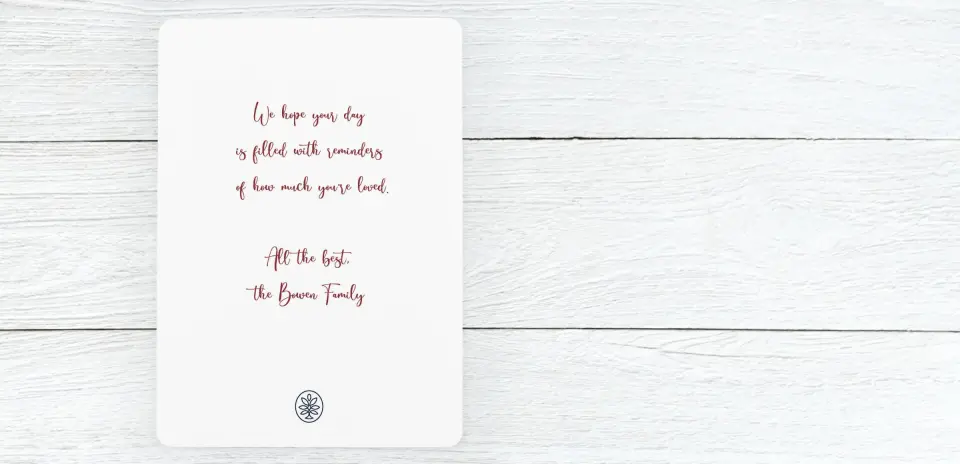 We hope your day
is filled with reminders
of how much you're loved.
All the best,
the Bowen Family